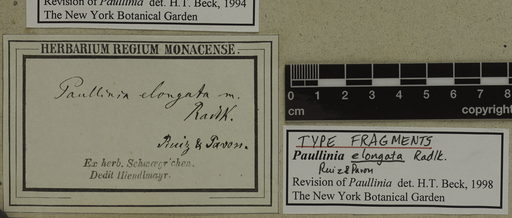 Revision of Paullinia det. H.T. Beck, 1994
The New York Botanical Garden
HERBARIUM REGIUM MONACENSE.
Paullinia elongata m.
Radlk.
Ruiz & Pavon.
Ex herb. Schwaegrichen.
Dedit Hiendlmayr.
0 1 2 3 4 5 6 7 8
cm copyright
TYPE FRAGMENTS
Paullinia elongata Radlk.
Ruiz & Pavon
Revision of Paullinia det. H.T. Beck, 1998
The New York Botanical Garden